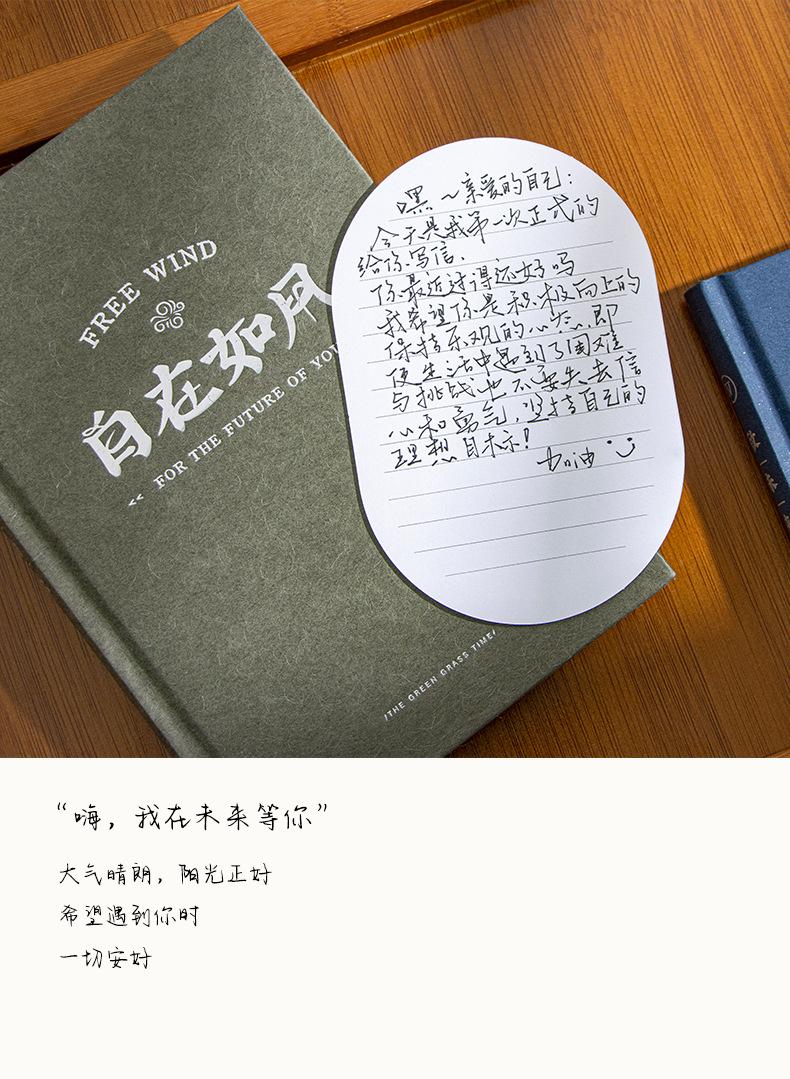 FREE WIND
自在如风
<< FOR THE FUTURE OF YOU
/THE GREEN GRASS TIME/
嘿~亲爱的自己：
今天是我第一次正式的
给你写信、
你最近过得还好吗
我希望你是积极向上的
保持乐观的心态,即
便生活中遇到了困难
与挑战也不要失去信
心和勇气，坚持自己的
理想目标！
加油
“嗨，我在未来等你”
大气晴朗，阳光正好
希望遇到你时
一切安好